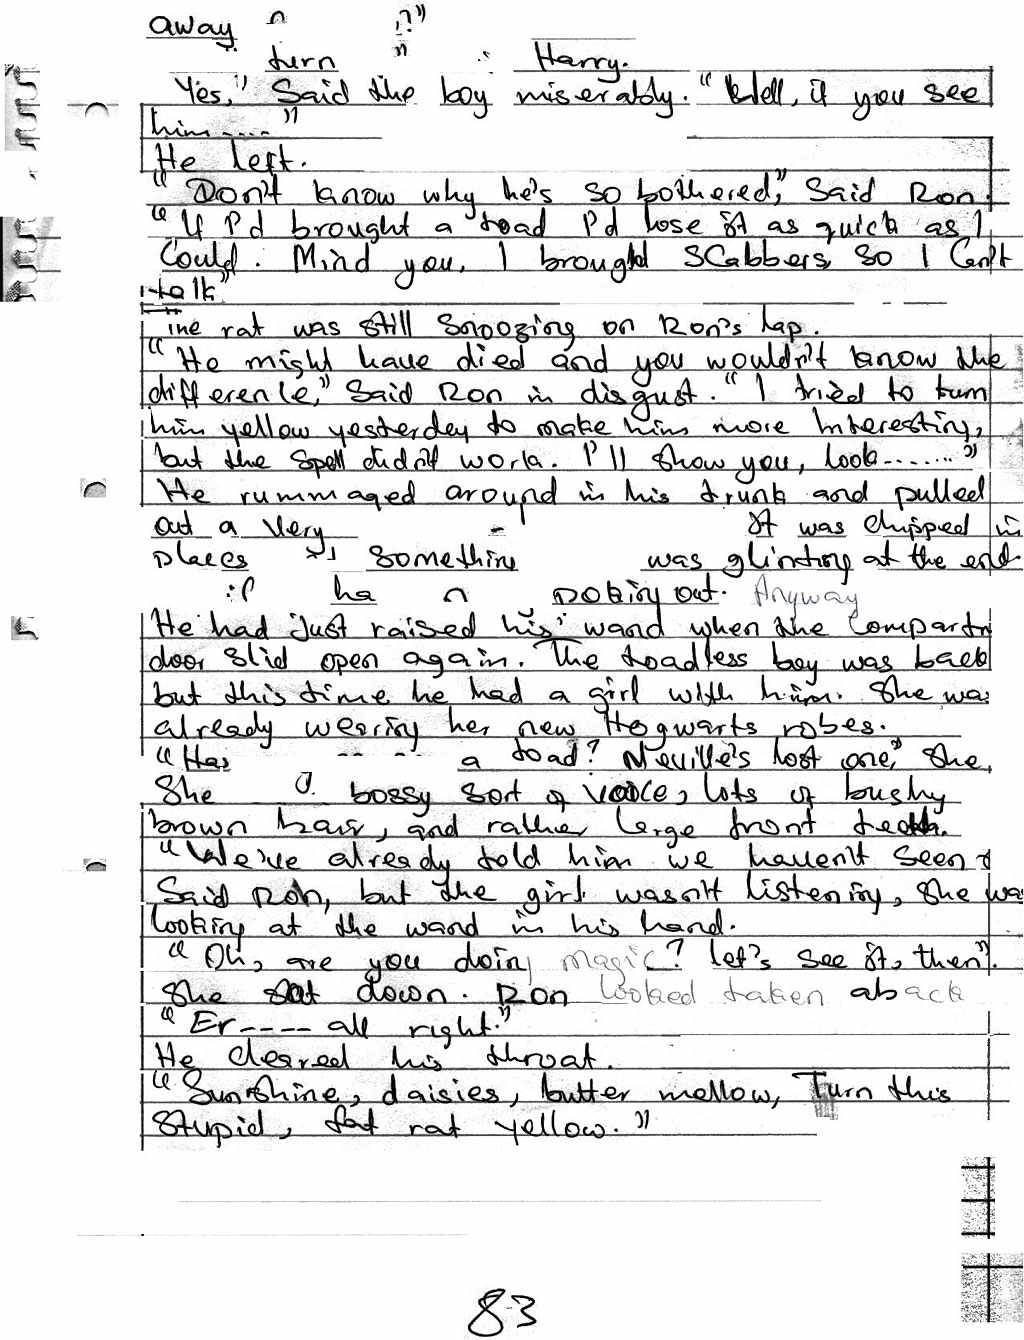 away ?"
turn " Harry.
Yes," Said the boy miserably. "Well, if you see
him ...."
He left.
"Don't know why he's so bothered," Said Ron.
"If I'd brought a toad I'd lose it as quick as I
Could. Mind you, I brought Scabbers, So I Can't
talk"
The rat was still snoozing on Ron's lap.
"He might have died and you wouldn't know the
difference," Said Ron in disgust. "I tried to turn
him yellow yesterday to make him more Interesting,
but the Spell didn't work. I'll Show you, look......."
He rummaged around in his trunk and pulled
out a Very It was chipped in
places Something was glinting at the end.
ha Poking out. Anyway
He had just raised his wand when the Compartm
door slid open again. The toadless boy was back
but this time he had a girl with him. She was
already wearing her new Hogwarts robes.
"Has a toad? Neville's lost one," She
She bossy sort of voice, lots of bushy
brown hair, and rather large front teeth.
"We've already told him we haven't Seen
Said Ron, but the girl wasn't listening, She was
looking at the wand in his hand.
"Oh, are you doing magic? Let's see it, then".
She sat down. Ron looked taken aback
"Er---- all right."
He cleared his throat.
"Sunshine, daisies, butter mellow, Turn this
Stupid, fat rat yellow."
83